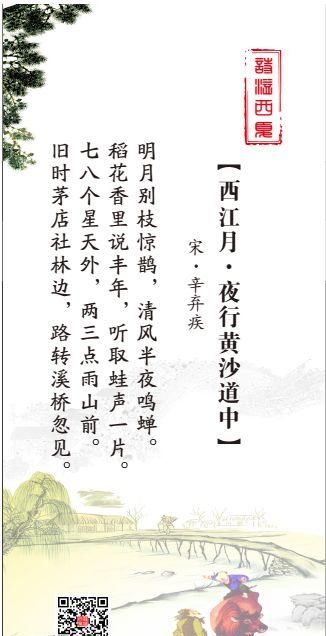 诗游西夏
【西江月·夜行黄沙道中】
宋·辛弃疾
明月别枝惊鹊，清风半夜鸣蝉。
稻花香里说丰年，听取蛙声一片。
七八个星天外，两三点雨山前。
旧时茅店社林边，路转溪桥忽见。